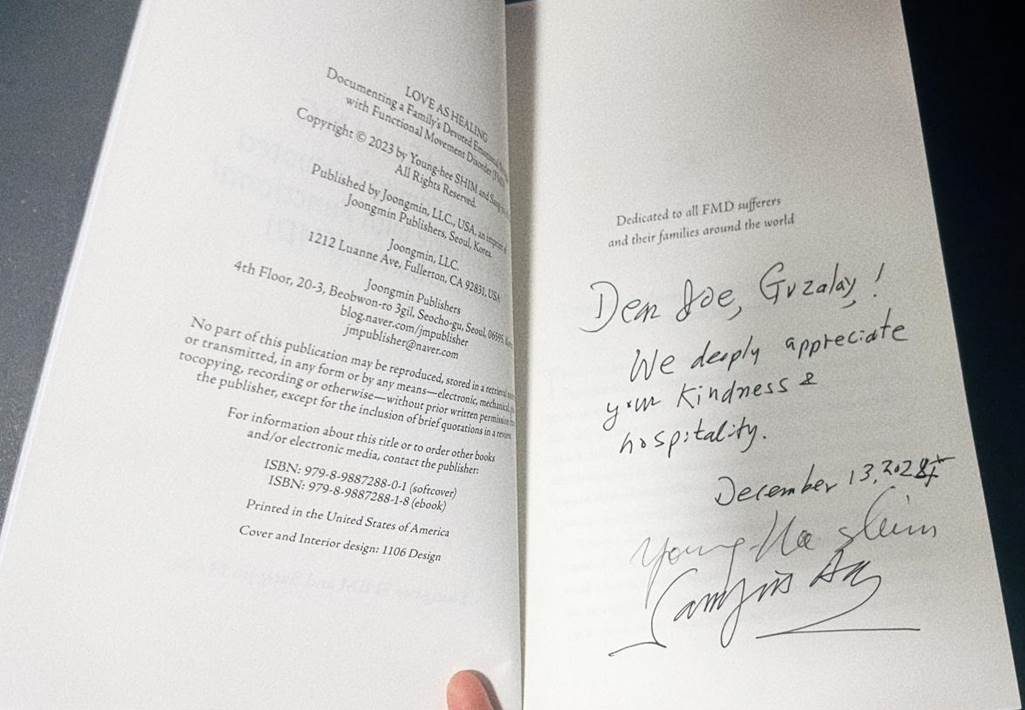 LOVE AS HEALING
Documenting a Family's Devoted
with Functional Movement Disorder (FMD)
Copyright © 2023 by Young-hee SHIM and
All Rights Reserved.
Published by Joongmin, LLC., USA, an imprint of
Joongmin Publishers, Seoul, Korea.
Joongmin, LLC.
1212 Luanne Ave, Fullerton, CA 92831, USA
Joongmin Publishers
4th Floor, 20-3, Beobwon-ro 3gil, Seocho-gu, Seoul, 06595,
blog.naver.com/jmpublisher
jmpublisher@naver.com
No part of this publication may be reproduced, stored in a retrieval
or transmitted, in any form or by any means—electronic, mechanical,
tocopying, recording or otherwise—without prior written permission
the publisher, except for the inclusion of brief quotations in a review.
For information about this title or to order other books
and/or electronic media, contact the publisher:
ISBN: 979-8-9887288-0-1 (softcover)
ISBN: 979-8-9887288-1-8 (ebook)
Printed in the United States of America
Cover and Interior design: 1106 Design
Dedicated to all FMD sufferers
and their families around the world
Dear Joe, Guzalay!
We deeply appreciate
your kindness &
hospitality.
December 13,
Young-Hee Shim